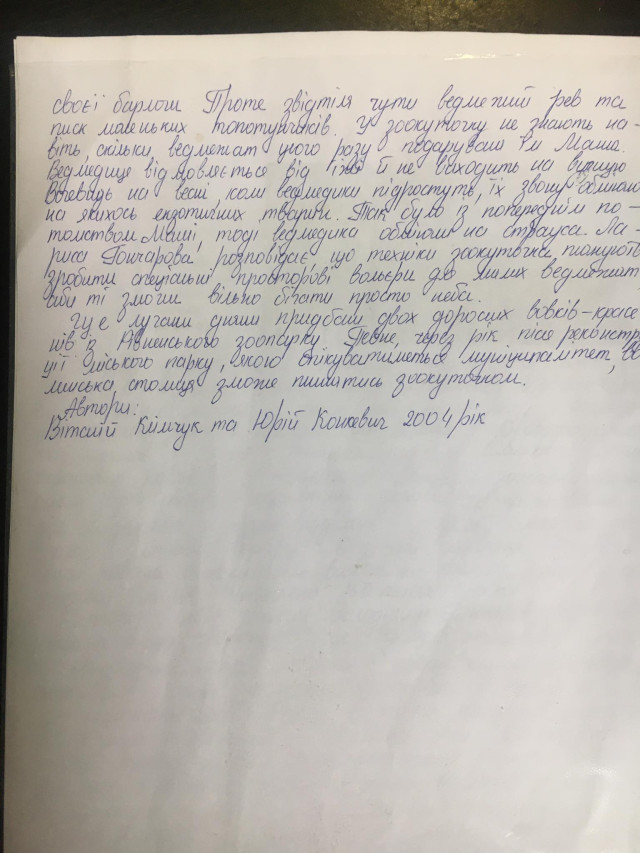 своєї барлоги Проте звідтіля чути ведмежий рев та
писк маленьких топотунчиків. У зоокуточку не знають на-
віть, скільки ведмежат цього разу подарувала їм Маша.
Ведмедиця відмовляється від їжі й не виходить на вулицю
Вочевидь на весні, коли ведмедики підростуть, їх знову обміняють
на якихось екзотичних тварин. Так було із попереднім по-
томством Маші, тоді ведмедика обміняли на страуса. Ла-
риса Гончарова розповідає, що техніки зоокуточка планують
зробити спеціальні просторові вольєри для милих ведмежат
аби ті змогли вільно бігати просто неба.
Ще лучани днями придбали двох дорослих вовків-красе-
нів з Рівненського зоопарку. Певне, через рік після реконстру
ції міського парку, якого опікуватиметься муніципалітет, во
линська столиця зможе пишатись зоокуточком.
Автори:
Віталій Клімчук та Юрій Конкевич 2004 рік